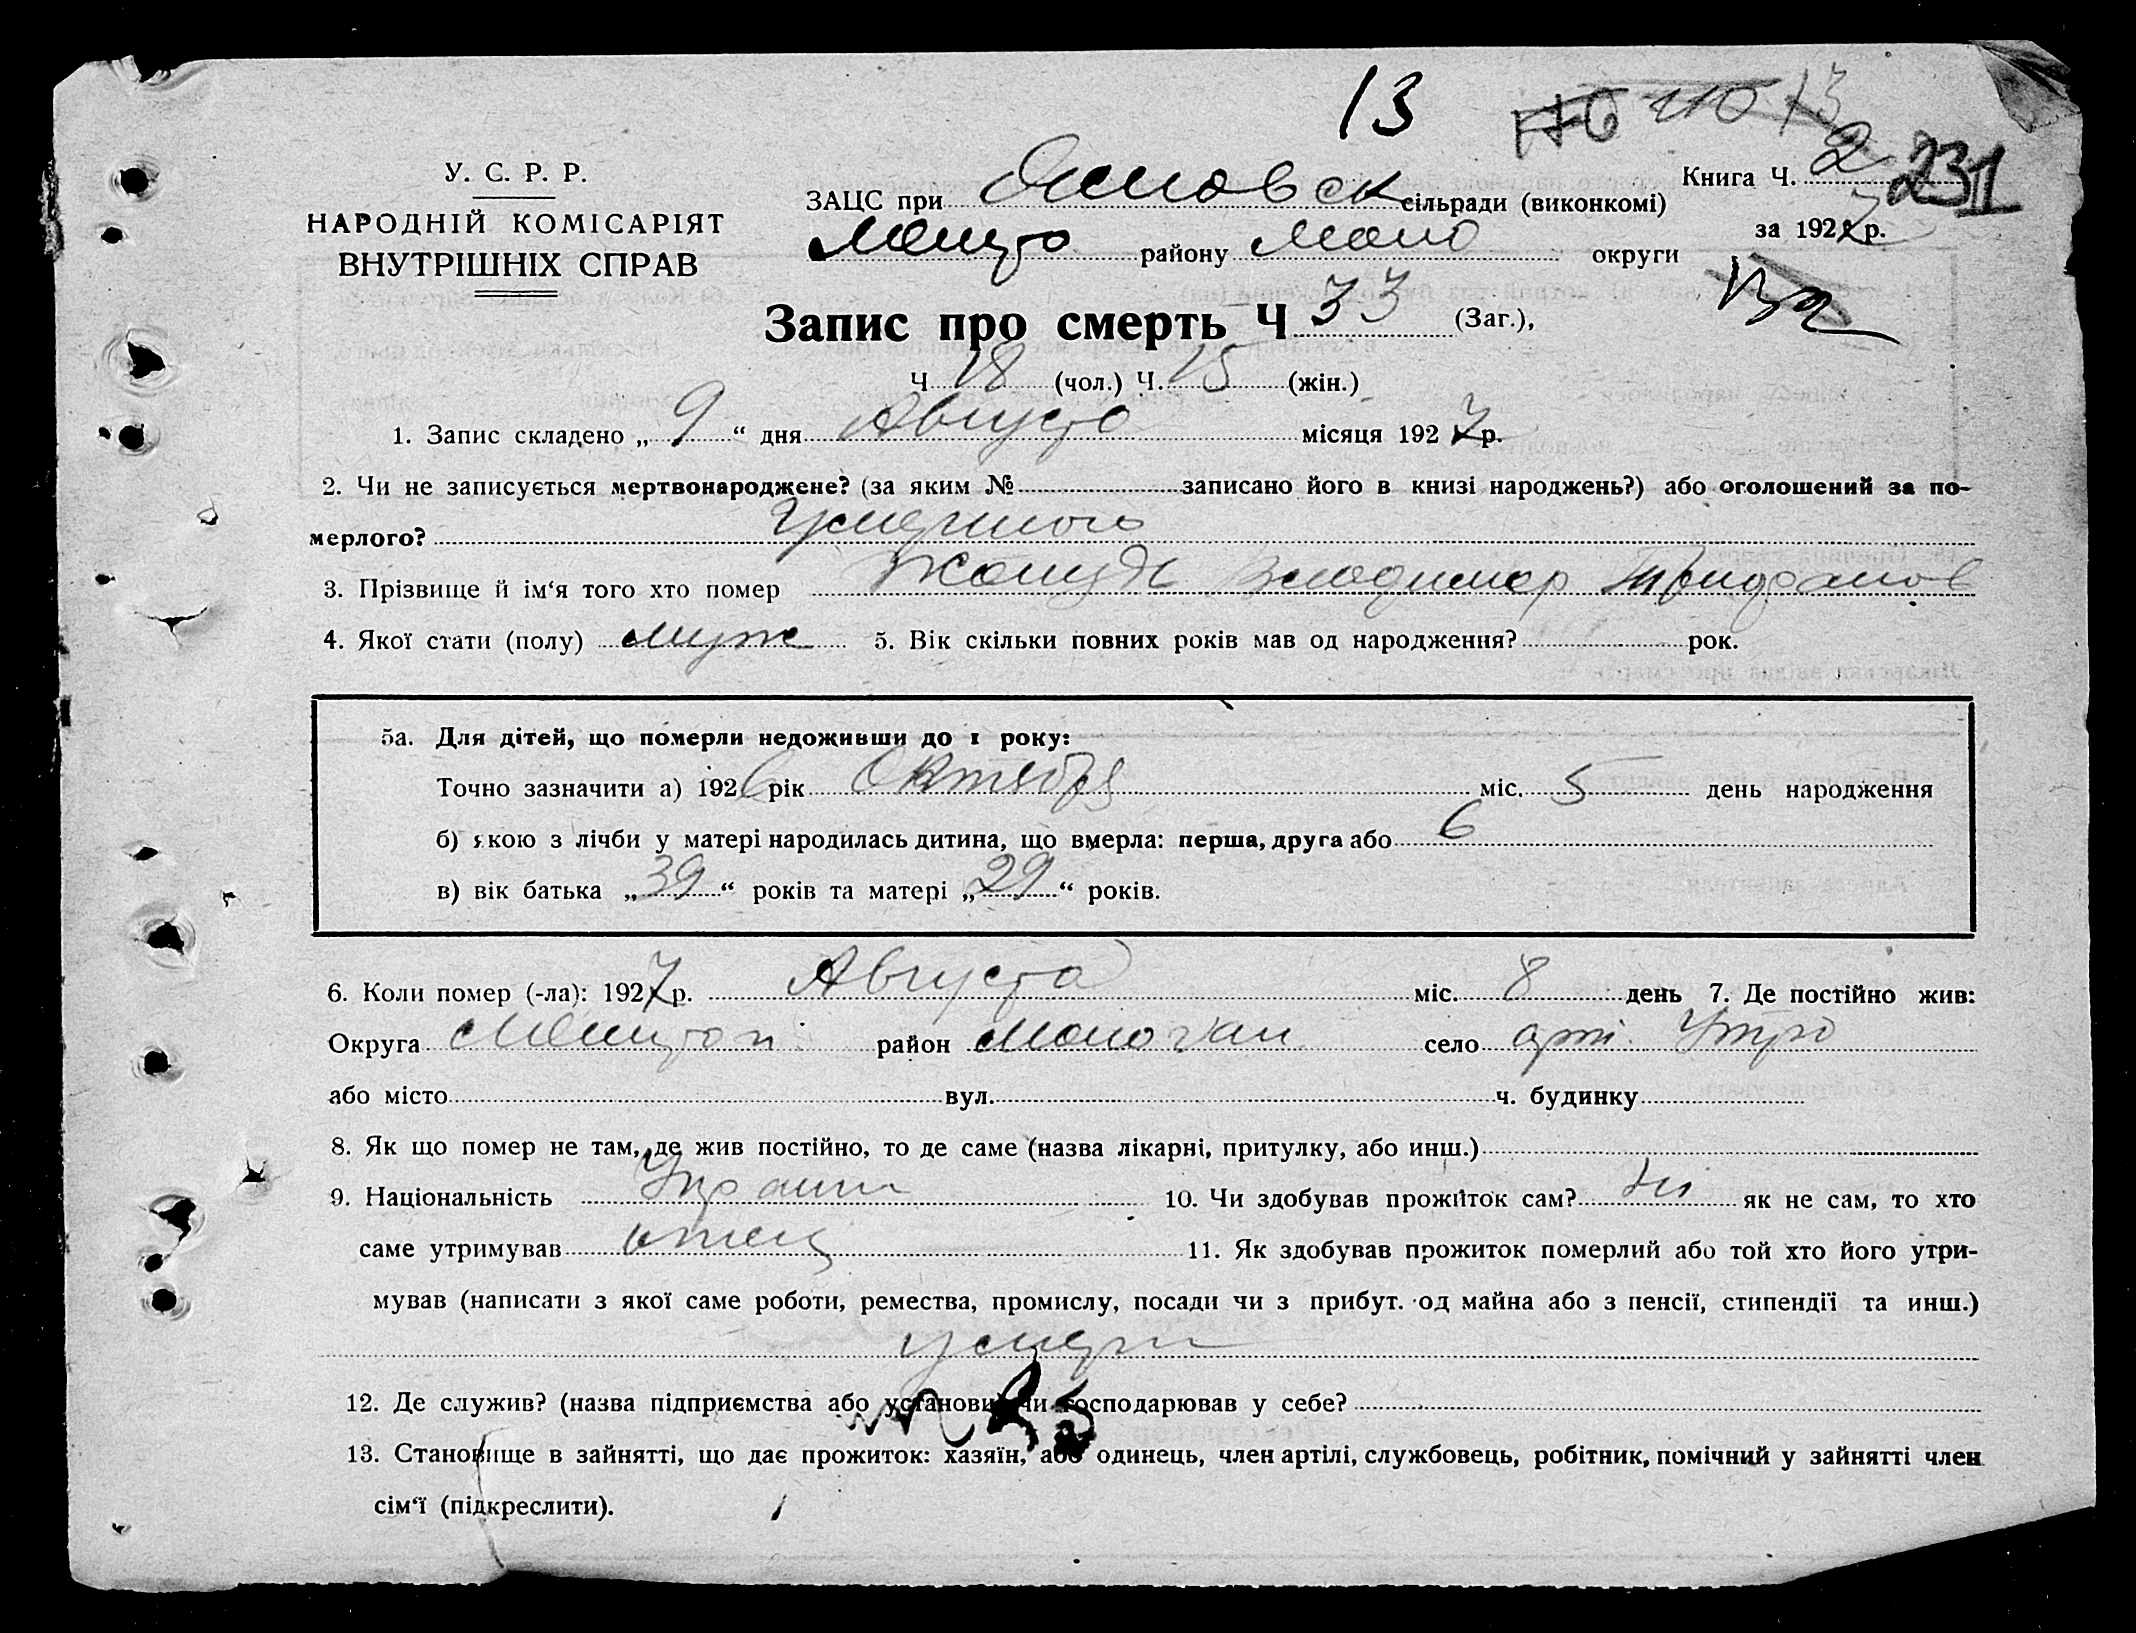 13
У. С. Р. Р.
НАРОДНІЙ КОМІСАРІЯТ
ВНУТРІШНІХ СПРАВ
ЗАЦС при сільради (виконкомі)
району округи
Книга Ч. 2 231
за 1927 р.
Запис про смерть Ч 33 (Заг.),
Ч 18 (чол.) Ч. 15 (жін.)
1. Запис складено „ 9 “ дня Августа місяця 1927 р.
2. Чи не записується мертвонароджене? (за яким № записано його в книзі народжень?) або оголошений за по-
мерлого?
3. Прізвище й ім‘я того хто помер Володимер
4. Якої стати (полу) муж 5. Вік скільки повних років мав од народження? рок.
5а. Для дітей, що померли недоживши до 1 року:
Точно зазначити а) 1926 рік Октября міс. 5 день народження
б) якою з лічби у матері народилась дитина, що вмерла: перша, друга або 6
в) вік батька „ 39 “ років та матері „ 29 “ років.
6. Коли помер (-ла): 1927 р. Августа міс. 8 день 7. Де постійно жив:
Округа район село арт. Утро
або місто вул. ч. будинку
8. Як що помер не там, де жив постійно, то де саме (назва лікарні, притулку, або инш.)
9. Національність 10. Чи здобував прожиток сам? Ні як не сам, то хто
саме утримував отец 11. Як здобував прожиток померлий або той хто його утри-
мував (написати з якої саме роботи, ремества, промислу, посади чи з прибут. од майна або з пенсії, стипендії та инш.)
12. Де служив? (назва підприємства або установи) чи господарював у себе?
13. Становище в зайнятті, що дає прожиток: хазяїн, або одинець, член артілі, службовець, робітник, помічний у зайнятті член
сім‘ї (підкреслити).